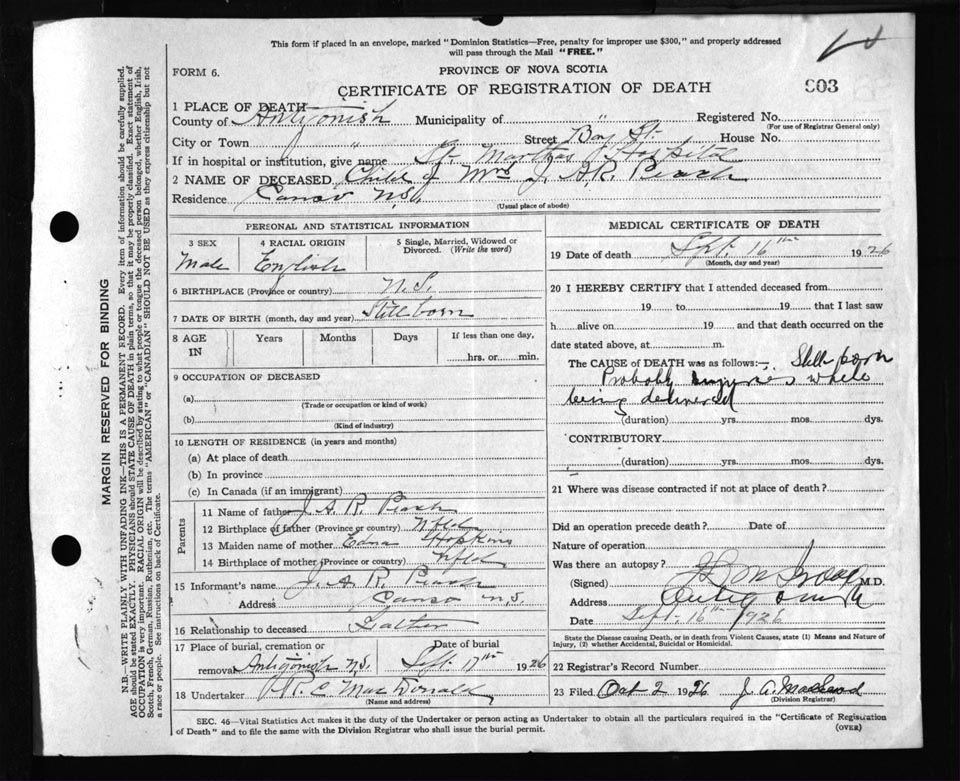 This form if placed in an envelope, marked "Dominion Statistics—Free, penalty for improper use $300," and properly addressed
will pass through the Mail "FREE."
FORM 6.
PROVINCE OF NOVA SCOTIA
CERTIFICATE OF REGISTRATION OF DEATH
803
1 PLACE OF DEATH
County of Antigonish Municipality of " Registered No.
(For use of Registrar General only)
City or Town " Street Bay St. House No.
If in hospital or institution, give name St. Martha's Hospital
2 NAME OF DECEASED Child of Mrs J. A.R. Peach
Residence Canso N.S.
(Usual place of abode)
PERSONAL AND STATISTICAL INFORMATION
3 SEX
Male
4 RACIAL ORIGIN
English
5 Single, Married, Widowed or
Divorced. (Write the word)
6 BIRTHPLACE (Province or country) N.S.
7 DATE OF BIRTH (month, day and year) Still born
8 AGE
IN
Years Months Days
If less than one day,
hrs. or min.
9 OCCUPATION OF DECEASED
(a)
(Trade or occupation or kind of work)
(b)
(Kind of industry)
10 LENGTH OF RESIDENCE (in years and months)
(a) At place of death
(b) In province
(c) In Canada (if an immigrant)
Parents
11 Name of father J. A. R. Peach
12 Birthplace of father (Province or country) Nfld
13 Maiden name of mother Edna Hopkins
14 Birthplace of mother (Province or country) Nfld
15 Informant's name J. A. R. Peach
Address Canso N.S.
16 Relationship to deceased Father
17 Place of burial, cremation or Date of burial
removal Antigonish N.S. Sept. 17th 1926
18 Undertaker MacDonald
(Name and address)
MEDICAL CERTIFICATE OF DEATH
19 Date of death Sept. 16th 1926
(Month, day and year)
20 I HEREBY CERTIFY that I attended deceased from
19 to 19 that I last saw
h alive on 19 and that death occurred on the
date stated above, at m.
The CAUSE of DEATH was as follows:— Still born
Probably injuries while
being delivered
(duration) yrs. mos. dys.
CONTRIBUTORY
(duration) yrs. mos. dys.
21 Where was disease contracted if not at place of death?
Did an operation precede death? Date of
Nature of operation
Was there an autopsy?
(Signed) M.D.
Address Antigonish
Date Sept. 16th 1926
State the Disease causing Death, or in death from Violent Causes, state (1) Means and Nature
of Injury, (2) whether Accidental, Suicidal or Homicidal.
22 Registrar's Record Number
23 Filed Oct 2 1926 J. A. MacLeod
(Division Registrar)
SEC. 46—Vital Statistics Act makes it the duty of the Undertaker or person acting as Undertaker to obtain all the particulars required in the "Certificate of Registration
of Death" and to file the same with the Division Registrar who shall issue the burial permit.
(OVER)
MARGIN RESERVED FOR BINDING
N.B.—WRITE PLAINLY WITH UNFADING INK—THIS IS A PERMANENT RECORD. Every item of information should be carefully supplied.
AGE should be stated EXACTLY. PHYSICIANS should STATE CAUSE OF DEATH in plain terms, so that it may be properly classified. Exact statement of
OCCUPATION is very important. RACIAL ORIGIN will be described by stating to what people or tongue the deceased person belonged, whether English, Irish,
Scotch, French, German, Russian, Ruthenian, etc. The terms "AMERICAN" or "CANADIAN" SHOULD NOT BE USED as they express citizenship but not
a race or people. See instructions on back of Certificate.